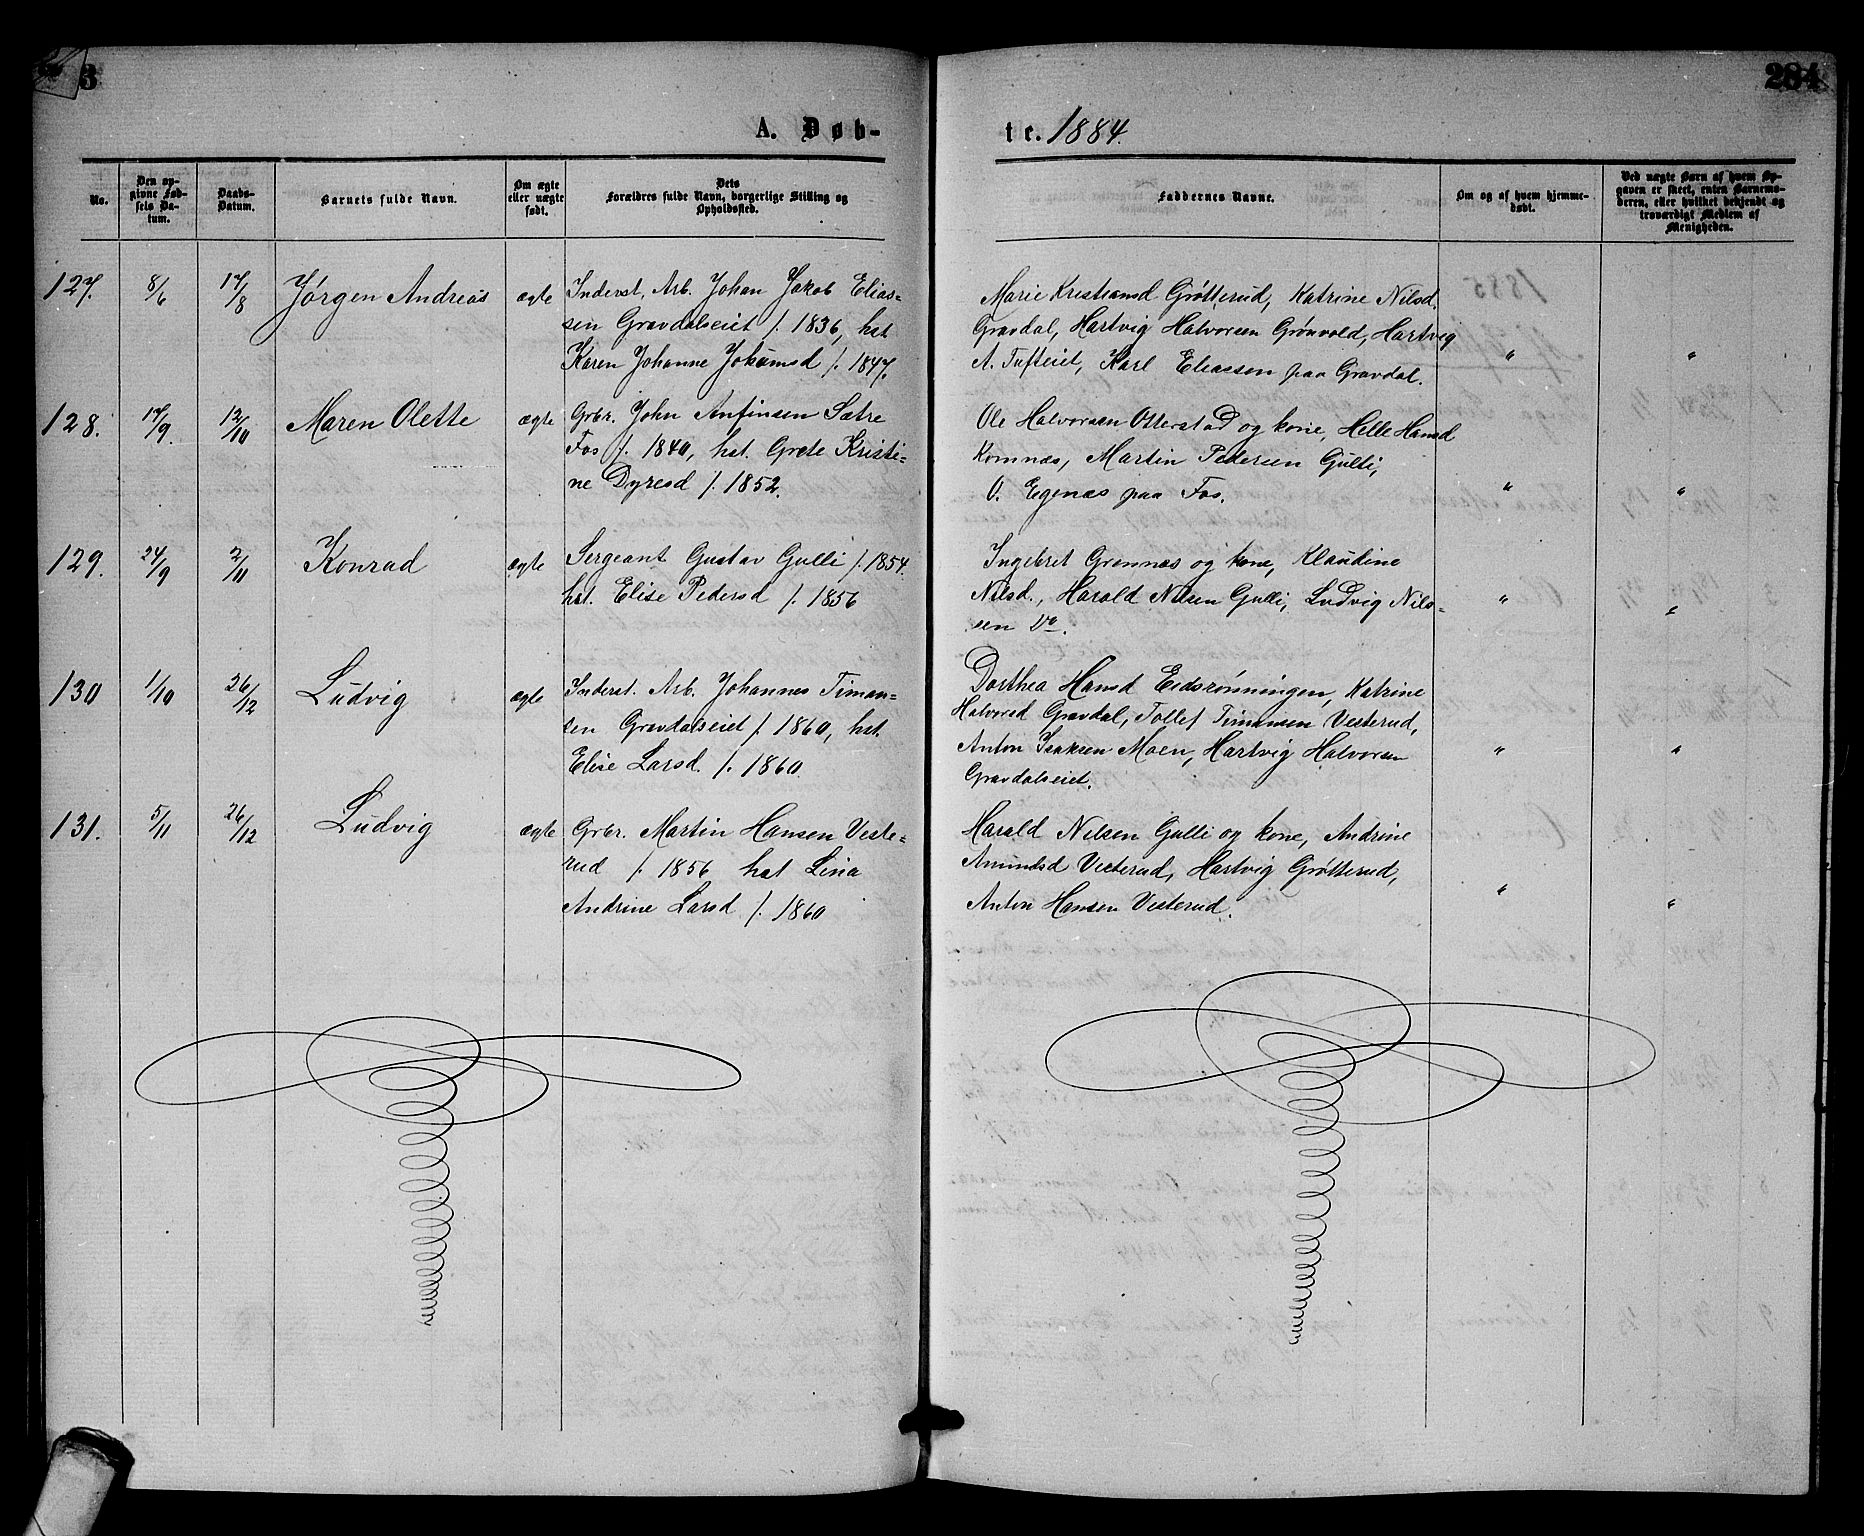 3
284
A. Døb-
te. 1884.
No.
Den op-
givne Fød-
sels Da-
tum.
Daabs-
Datum.
Barnets fulde Navn.
Om ægte
eller uægte
født.
Dets
Forældres fulde Navn, borgerlige Stilling og
Opholdssted.
Faddernes Navne.
Om og af hvem hjemme-
døbt.
Ved uægte Børn af hvem Op-
gaven er skeet, enten Barnemo-
deren, eller hvilket bekjendt og
troværdigt Medlem af
Menigheden.
127. 8/6 17/8 Jørgen Andreas ægte
Inderst, Arb. Johan Jakob Elias-
sen Gravdalseiet f. 1836, hst.
Karen Johanne Johansd f. 1847.
Marie Kristiansd Grøtterud, Katrine Nilsd.
Gravdal, Hartvig Halvorsen Grønvold, Hartvig
A. Tufteiet, Karl Eliassen paa Gravdal. " "
128. 17/9. 12/10 Maren Olette ægte
Grbr. John Anfinsen Sætre
Fos f. 1840, hst. Grete Kristi-
ne Dyresd f. 1852.
Ole Halvorsen Otterstad og kone, Helle Hansd
Komnæs, Martin Pedersen Gulli,
O. Egenæs paa Fos. " "
129. 24/9 2/11 Konrad ægte
Sergeant Gustav Gulli f. 1854.
hst. Elise Pedersd f. 1856
Ingebret Grennes og kone, Klaudine
Nilsd., Harald Nilsen Gulli, Ludvig Nils-
sen Do. " "
130 1/10 26/12 Ludvig ægte
Inderst. Arb. Johannes Timan-
sen Gravdalseiet f. 1860, hst.
Elise Larsd. f. 1860.
Dorthea Hansd Eidsrønningen, Katrine
Halvorsd Gravdal, Tollef Timansen Vesterud,
Anton Isaksen Moen, Hartvig Halvorsen
Gravdalseiet. " "
131. 5/11 26/12 Ludvig ægte
Grbr. Martin Hansen Veste-
rud f. 1856 hst Lina
Andrine Larsd f. 1860
Harald Nilsen Gulli og kone, Andrine
Amundsd Vesterud, Hartvig Grøtterud,
Anton Hansen Vesterud. " "